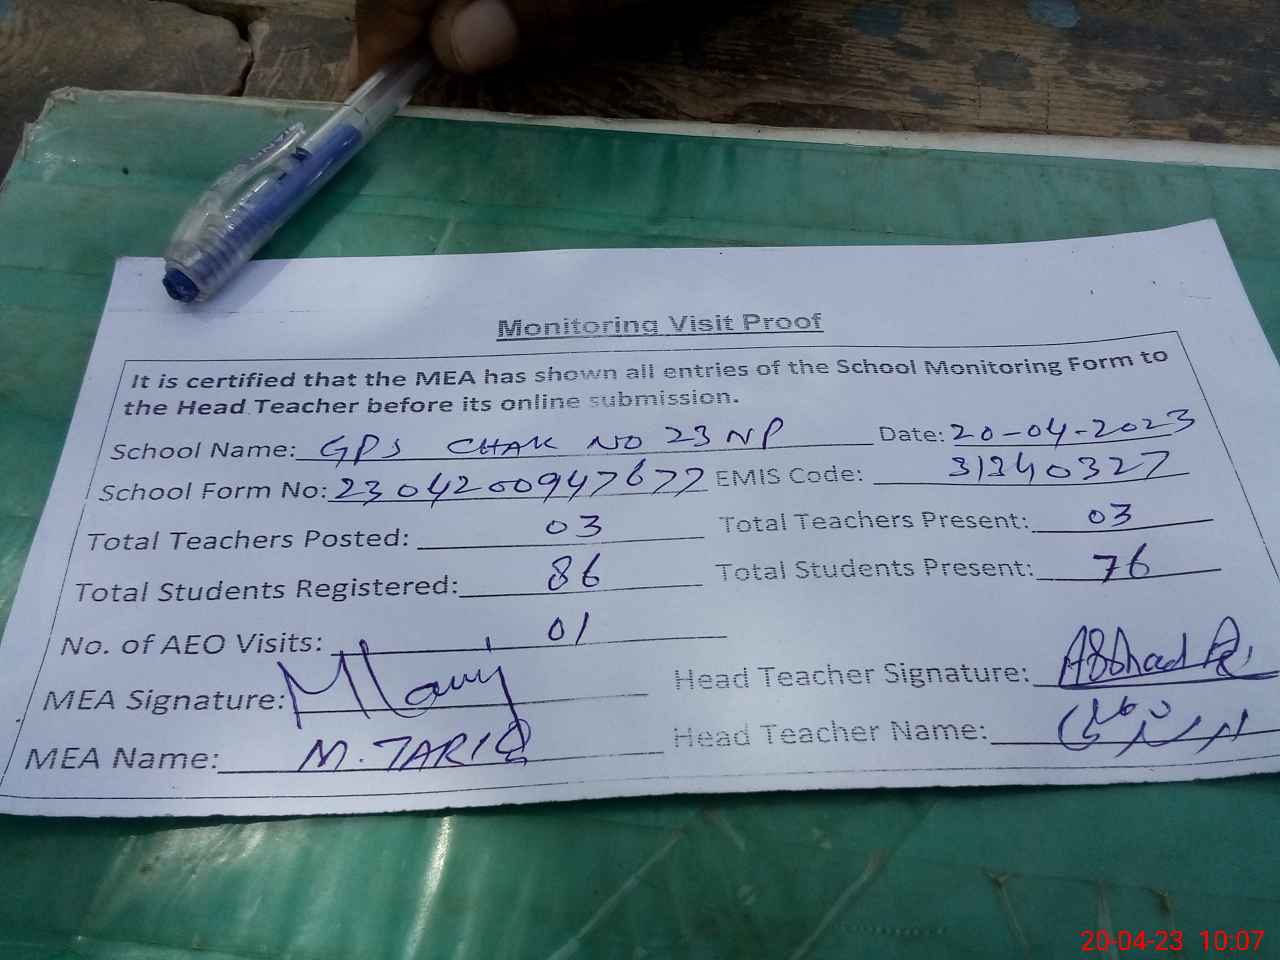 Monitoring Visit Proof
It is certified that the MEA has shown all entries of the School Monitoring Form to
the Head Teacher before its online submission.
School Name: GPS CHAK NO 23 NP Date: 20-04-2023
School Form No: 2304200947677 EMIS Code: 31340327
Total Teachers Posted: 03 Total Teachers Present: 03
Total Students Registered: 86 Total Students Present: 76
No. of AEO Visits: 01
MEA Signature: Head Teacher Signature:
MEA Name: M. TARIQ Head Teacher Name:
20-04-23 10:07